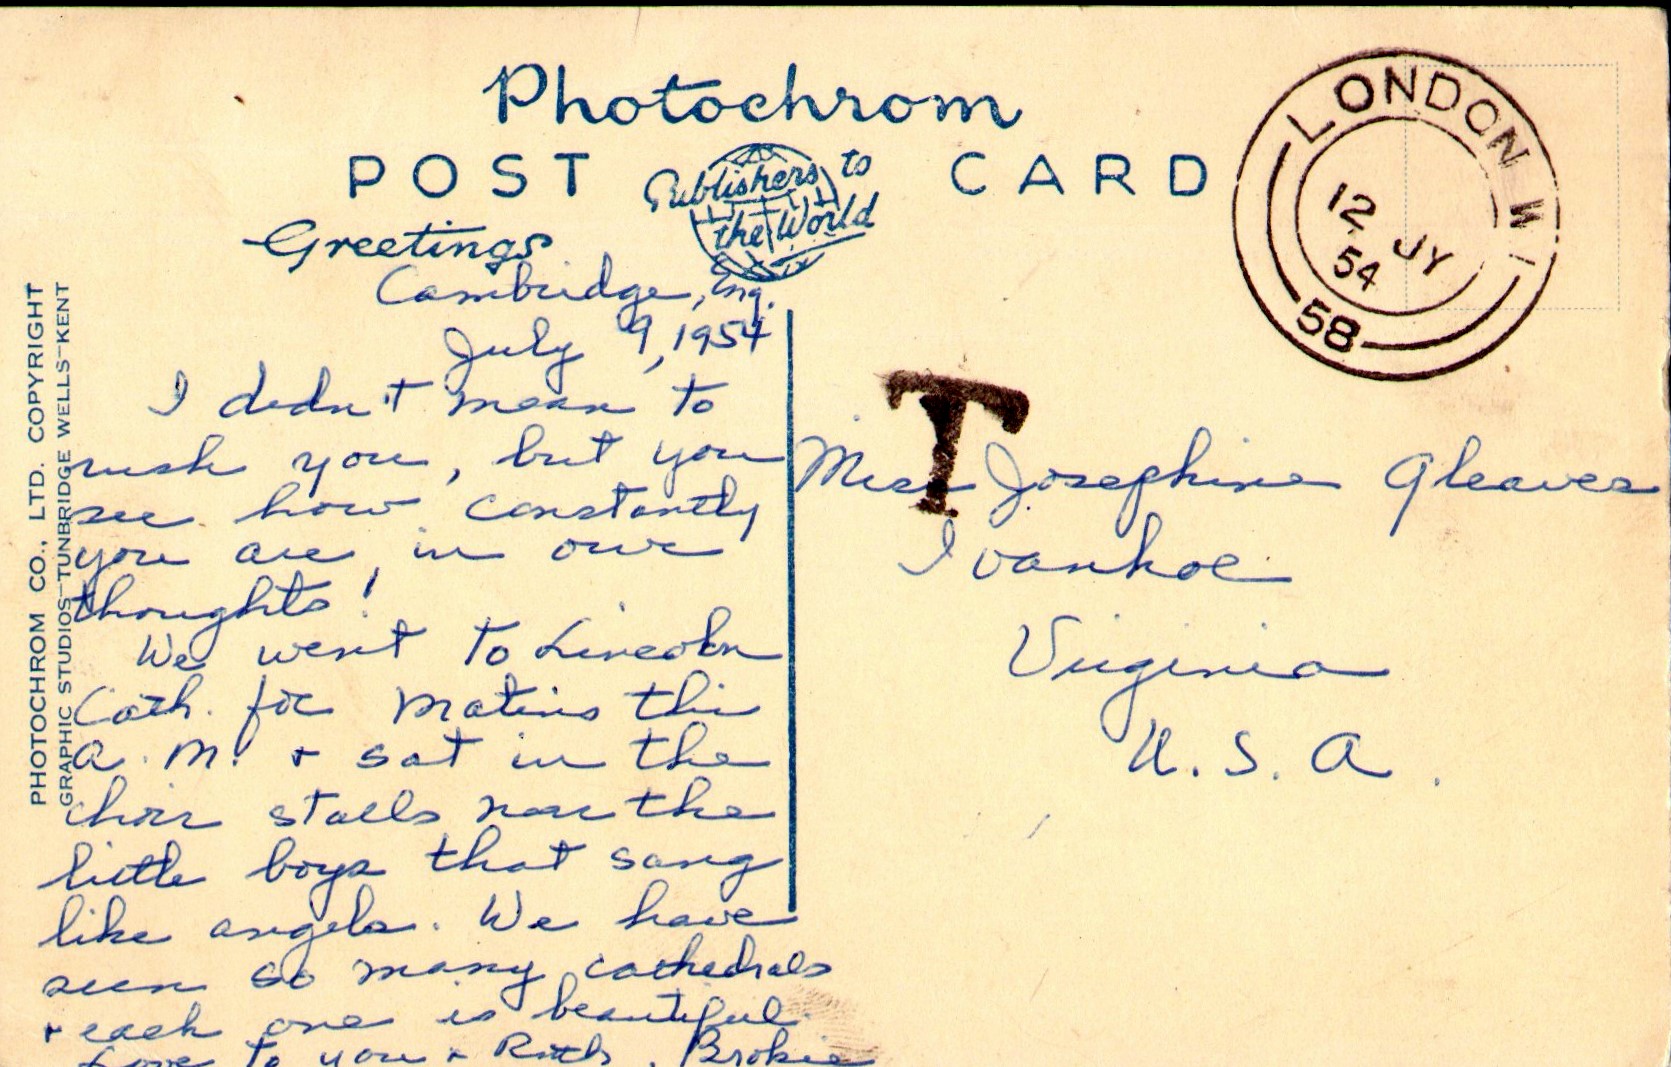 Photochrom
POST CARD
Publishers to
the World
LONDON W1
12 JY
54
58
T
PHOTOCHROM CO., LTD. COPYRIGHT
GRAPHIC STUDIOS-TUNBRIDGE WELLS-KENT
Greetings
Cambridge, Eng.
July 9, 1954
I didn't mean to
rush you, but you
see how constantly
you are in our
thoughts!
We went to Lincoln
Cath. for Matins this
A.M. + sat in the
choir stalls near the
little boys that sang
like angels. We have
seen so many cathedrals
+ each one is beautiful.
Love to you + Ruth, Brokie
Miss Josephine Gleaves
Ivanhoe
Virginia
U.S.A.